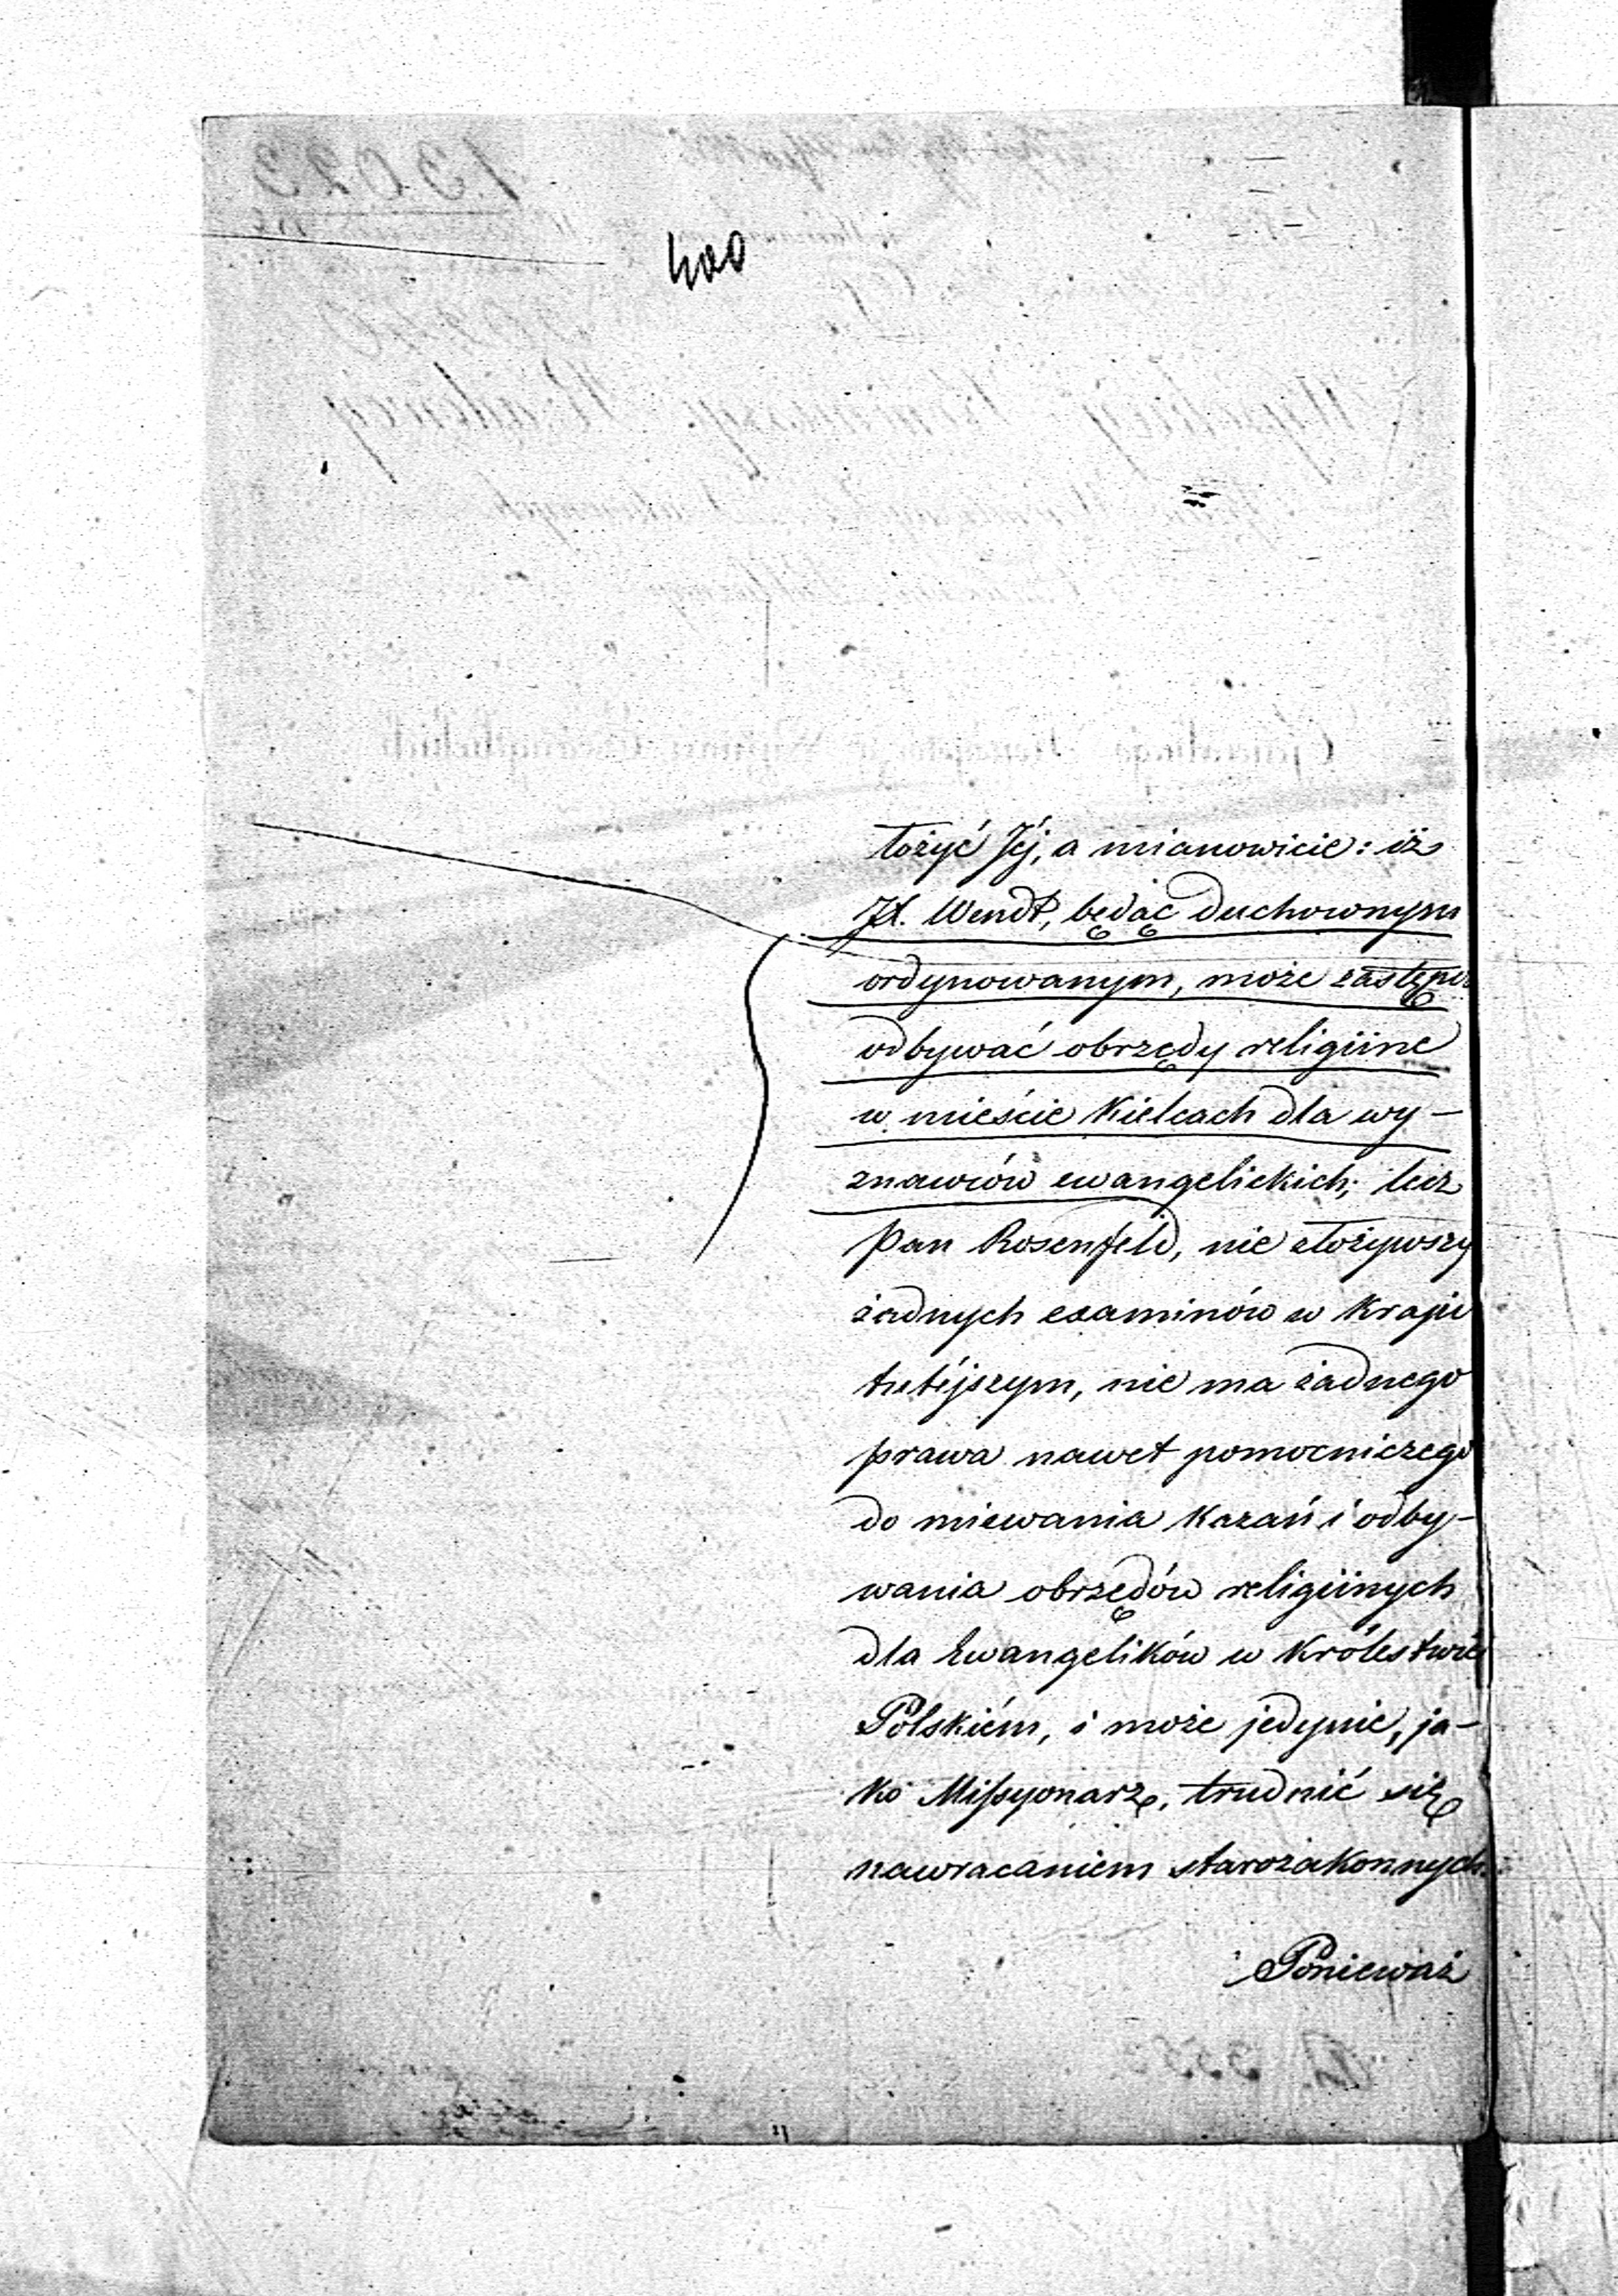 400
łożyć Jéj, a mianowicie: iż
JX. Wendt, będąc duchownym
ordynowanym, może zastępcz
odbywać obrzędy religiine
w mieście Kielcach dla wy-
znawców ewangelickich; lecz
Pan Rosenfeld, nie złożywszy
żadnych examinów w Kraju
tutéjszym, nie ma żadnego
prawa nawet pomocniczego
do miewania Kazań i odby-
wania obrzędów religiinych
dla Ewangelików w Królestwie
Polskiém, i może jedynie, ja-
ko Missyonarz, trudnić się
nawracaniem starozakonnych.
Ponieważ